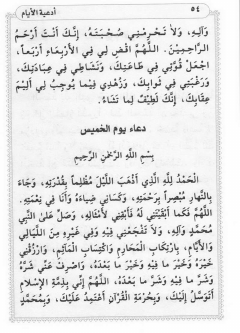 ٥٤
أدعية الأيام
وَآلِهِ، وَلاَ تَحْرِمْنِي صُحْبَتَهُ، إِنَّكَ أَنْتَ أَرْحَمُ
الرَّاحِمِينَ. اللَّهُمَّ اقْضِ لِي فِي الأَرْبِعَاءِ أَرْبَعاً،
اجْعَلْ قُوَّتِي فِي طَاعَتِكَ، وَنَشَاطِي فِي عِبَادَتِكَ،
وَرَغْبَتِي فِي ثَوَابِكَ، وَزُهْدِي فِيمَا يُوجِبُ لِي أَلِيمَ
عِقَابِكَ، إِنَّكَ لَطِيفٌ لِمَا تَشَاءُ.
دعاء يوم الخميس
بِسْمِ اللَّهِ الرَّحْمٰنِ الرَّحِيمِ
الْحَمْدُ لِلَّهِ الَّذِي أَذْهَبَ اللَّيْلَ مُظْلِماً بِقُدْرَتِهِ، وَجَاءَ
بِالنَّهَارِ مُبْصِراً بِرَحْمَتِهِ، وَكَسَانِي ضِيَاءَهُ وَأَنَا فِي نِعْمَتِهِ.
اللَّهُمَّ فَكَمَا أَبْقَيْتَنِي لَهُ فَأَبْقِنِي لأَمْثَالِهِ، وَصَلِّ عَلَى النَّبِيِّ
مُحَمَّدٍ وَآلِهِ، وَلاَ تَفْجَعْنِي فِيهِ وَفِي غَيْرِهِ مِنَ اللَّيَالِي
وَالأَيَّامِ، بِارْتِكَابِ الْمَحَارِمِ وَاكْتِسَابِ الْمَآثِمِ، وَارْزُقْنِي
خَيْرَهُ وَخَيْرَ مَا فِيهِ وَخَيْرَ مَا بَعْدَهُ، وَاصْرِفْ عَنِّي شَرَّهُ
وَشَرَّ مَا فِيهِ وَشَرَّ مَا بَعْدَهُ. اللَّهُمَّ إِنِّي بِذِمَّةِ الإِسْلاَمِ
أَتَوَسَّلُ إِلَيْكَ، وَبِحُرْمَةِ الْقُرْآنِ أَعْتَمِدُ عَلَيْكَ، وَبِمُحَمَّدٍ